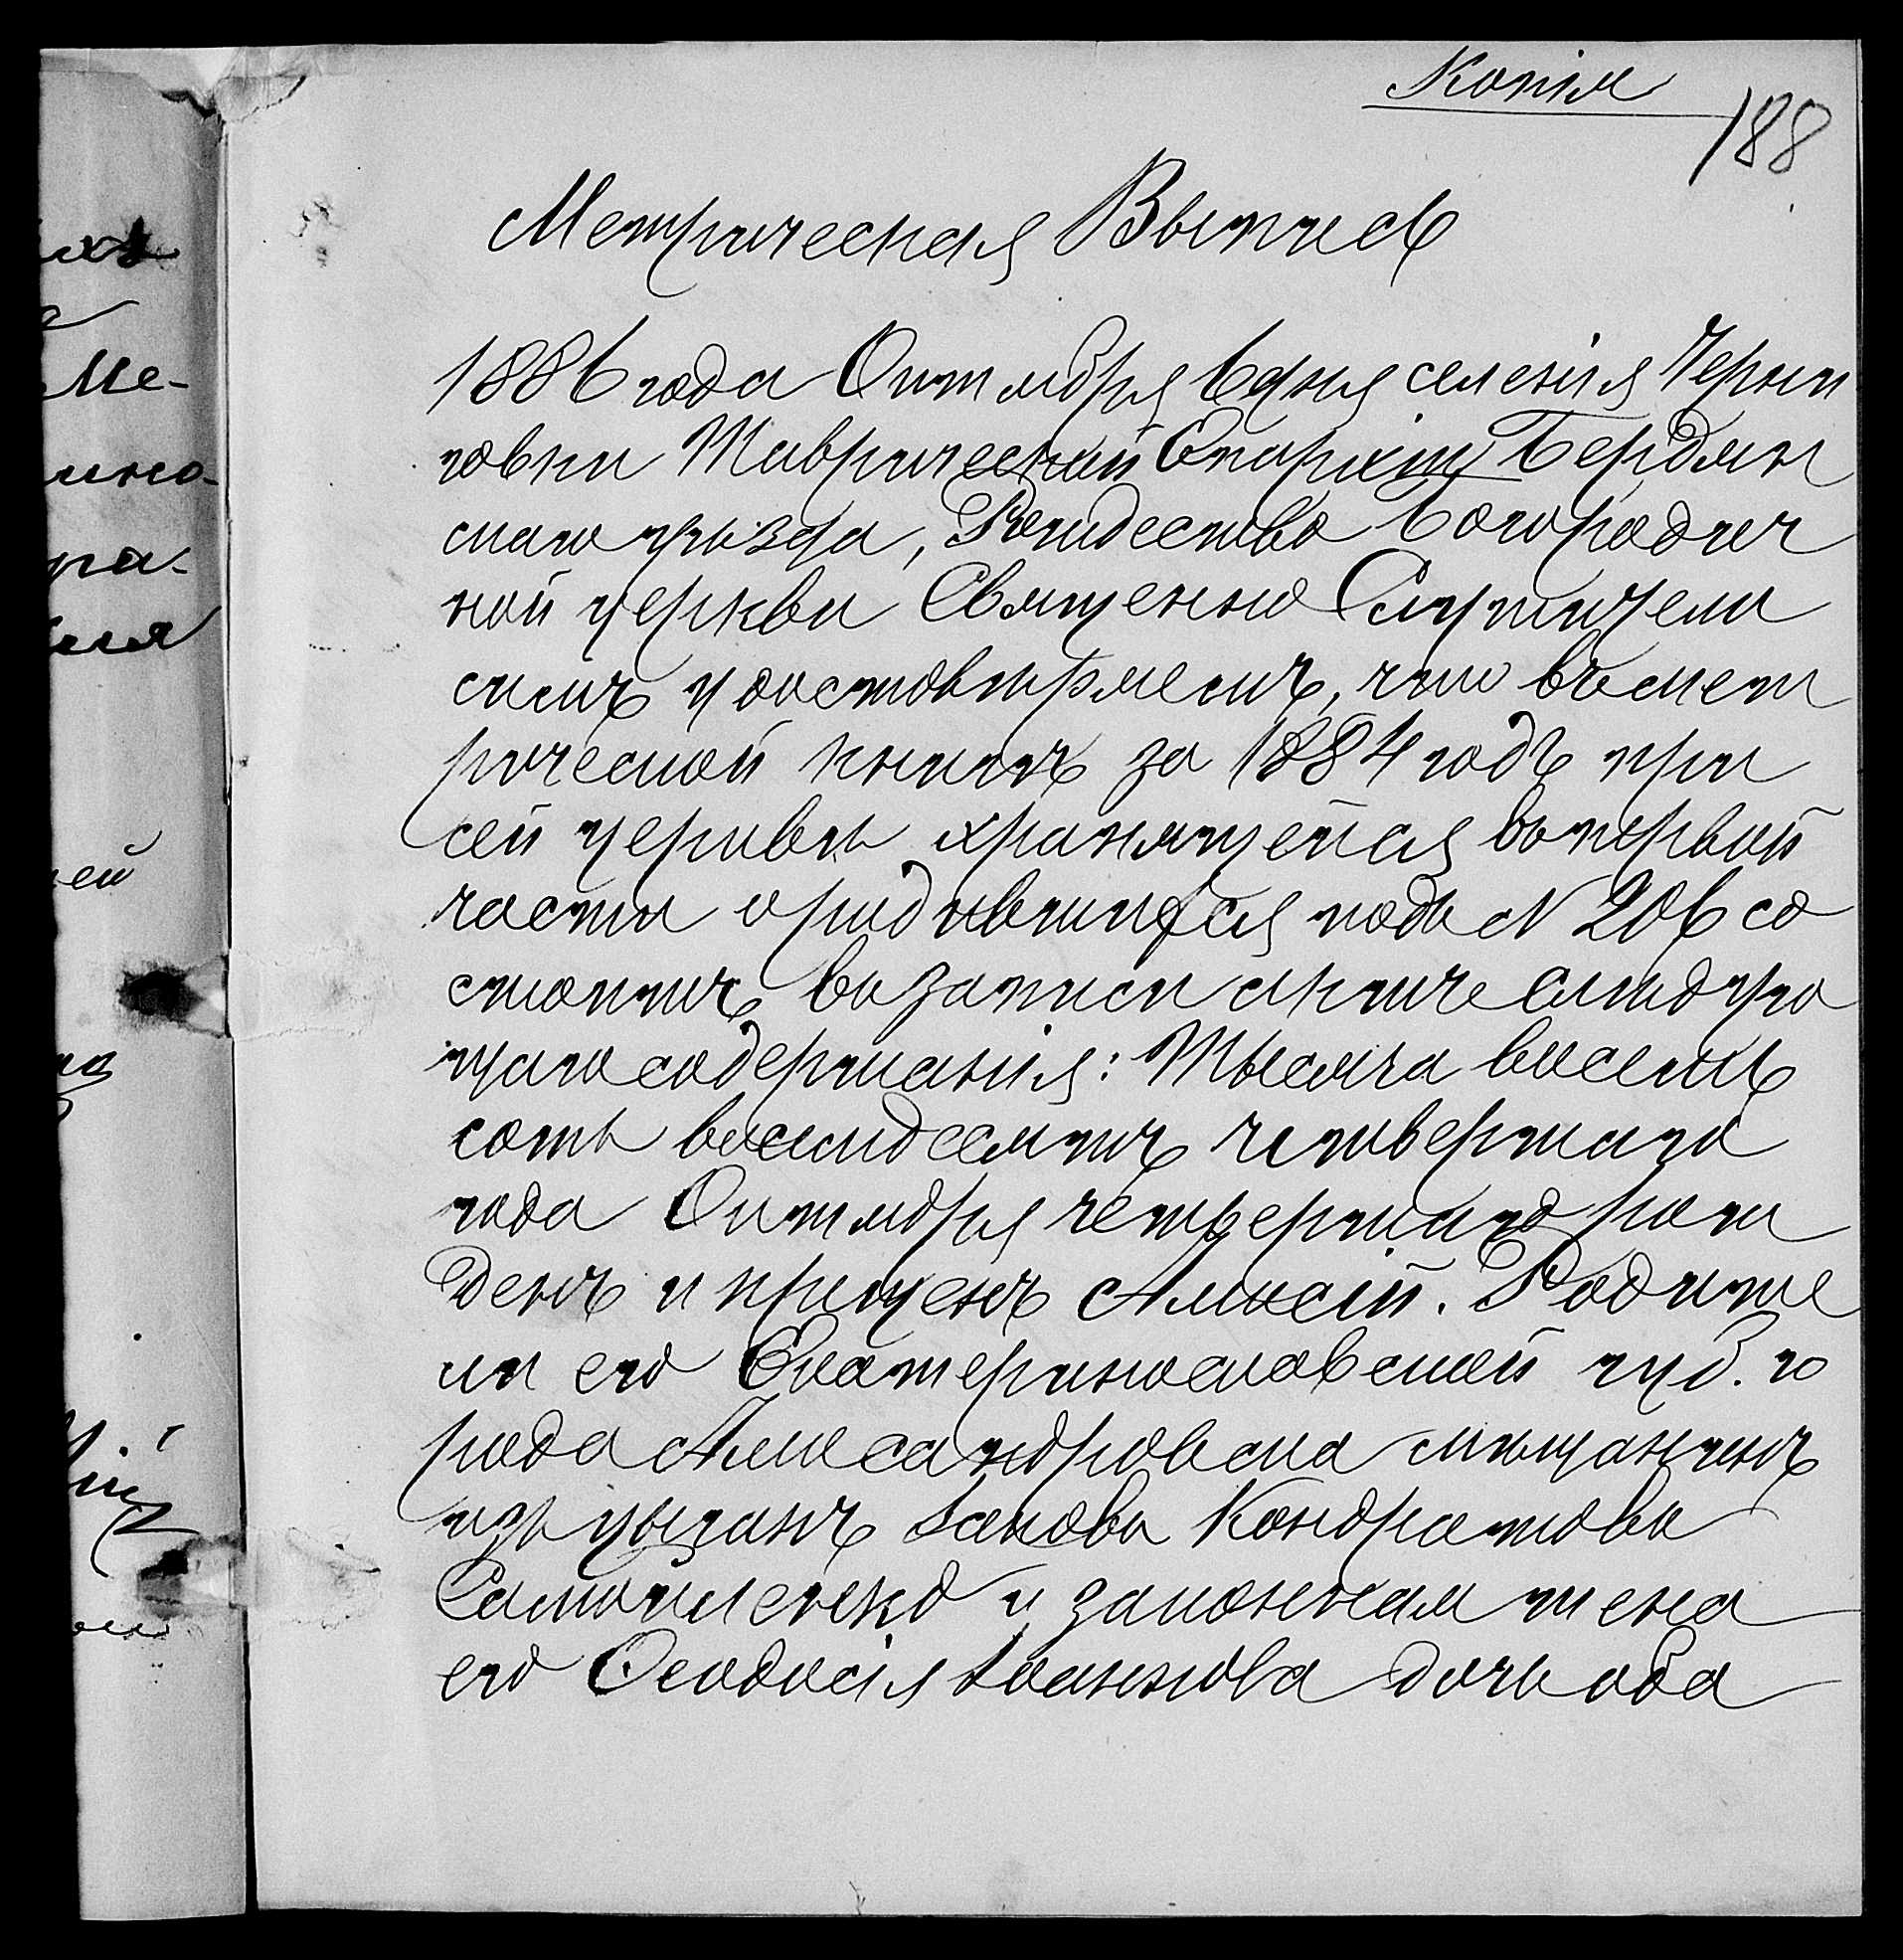 Копія
188
Метрическая Выпись
1886 года Октября 6 дня селенія Черни
говки Таврической Епархіи Бердян
скаго уѣзда, Рождество Богородич
ной церкви Священно Служители
симъ удостовѣряемъ, что въ мет
рической книгѣ за 1884 годъ при
сей церкви хранящейся въ первой
части о родившихся подъ N 206 со
стоитъ въ записи актъ слѣдую
щаго содержанія: Тысяча восемь
сотъ восемдесятъ четвертаго
года Октября четвертаго рож
денъ и крещенъ Алексій. Родите
ли его Екатеринославской губ. го
рода Александровска мѣщанинъ
изъ цыганъ Іаковъ Кондратовъ
Самойленко и законная жена
его Ѳеодосія Іоаннова дочь оба
Ме-
ино-
ра-
ей